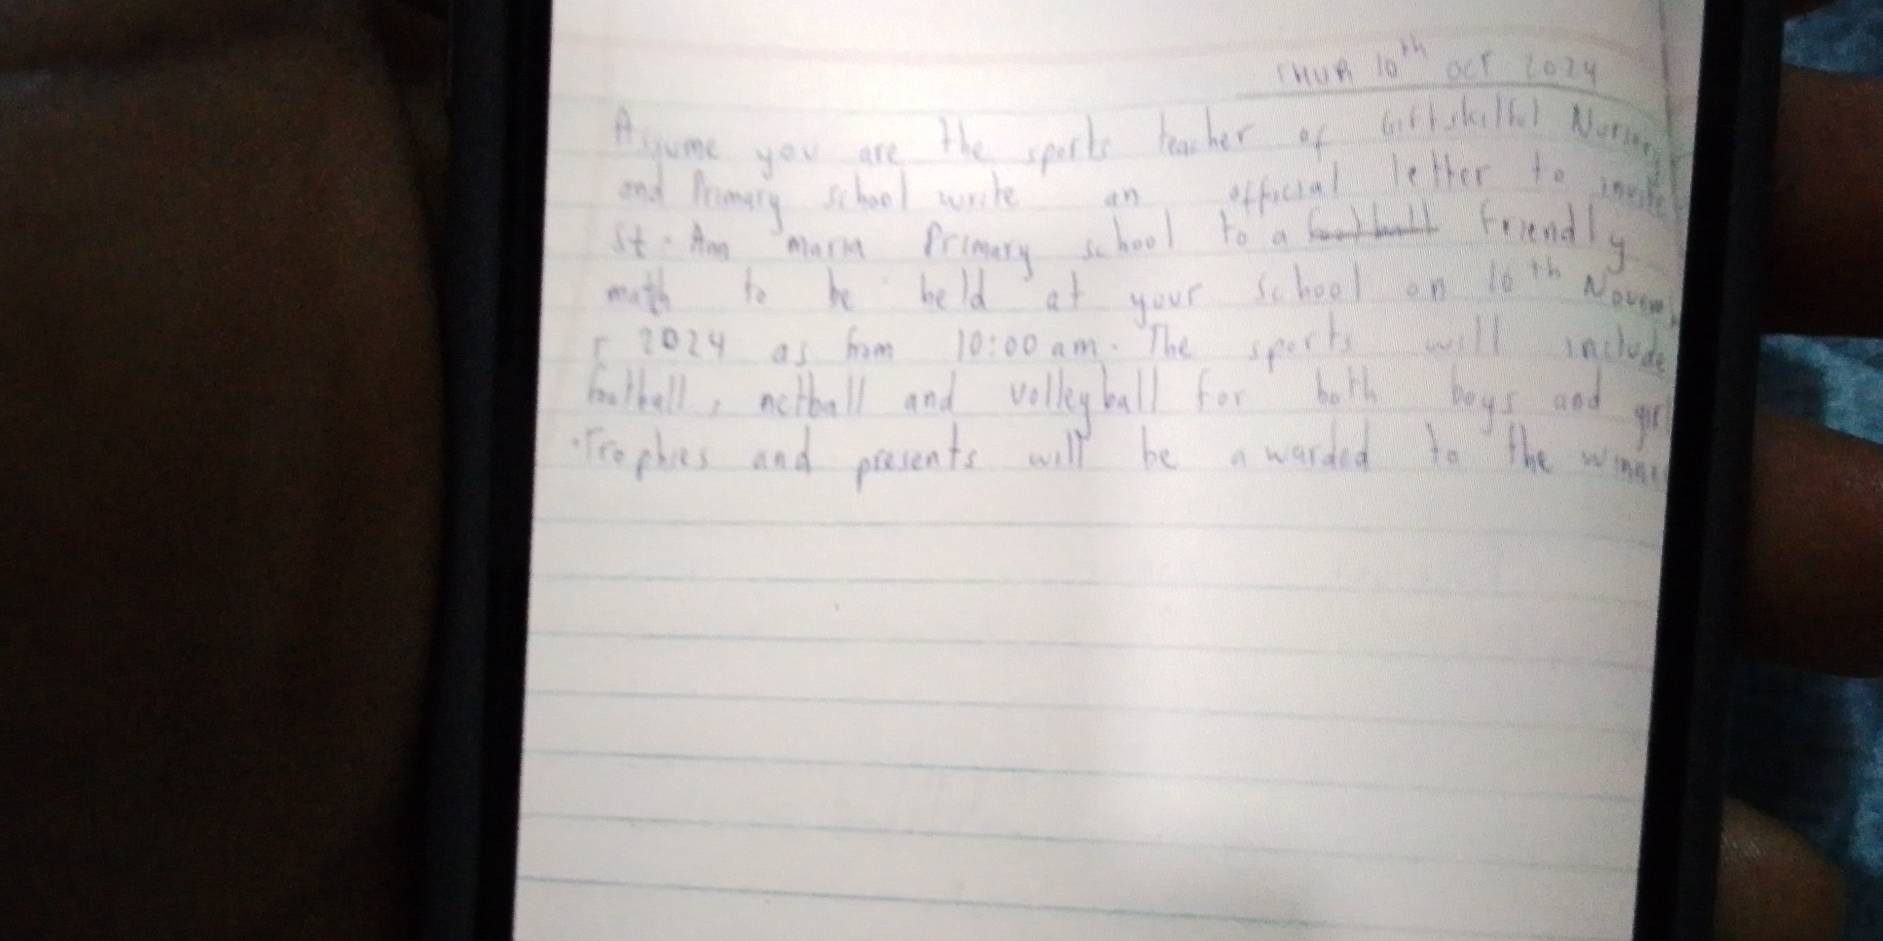 THUR 10th OCT 2024
Assume you are the sports teacher of Giftskilful Nursery
and Primary school write an official letter to invite
St. Ann maria Primary school to a football friendly
math to be held at your school on 10th Novem
r 2024 as from 10:00 am. The sports will include
football, netball and volleyball for both boys and girl
.Trophies and presents will be awarded to the winner